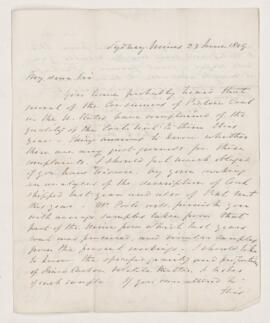 Sydney Mines 23 June 1849
My dear Sir
You have probably heard that
several of the Consumers of Pictou Coal
in the U. States have complained of the
quality of the Coals sent to them this
year. Being anxious to know whether
there are any just grounds for these
complaints, I should feel much obliged
if you have leisure, by your making
an analysis of the description of Coal
shipped last year and also of that sent
this year. Mr. Poole will furnish you
with average samples taken from that
part of the mine from which last years
coal was procured, and similar samples
from the present workings. I should like
to know the specific gravity and proportion
of fixed Carbon Volatile Matter, & Ashes
of each sample. If you were allowed to
this